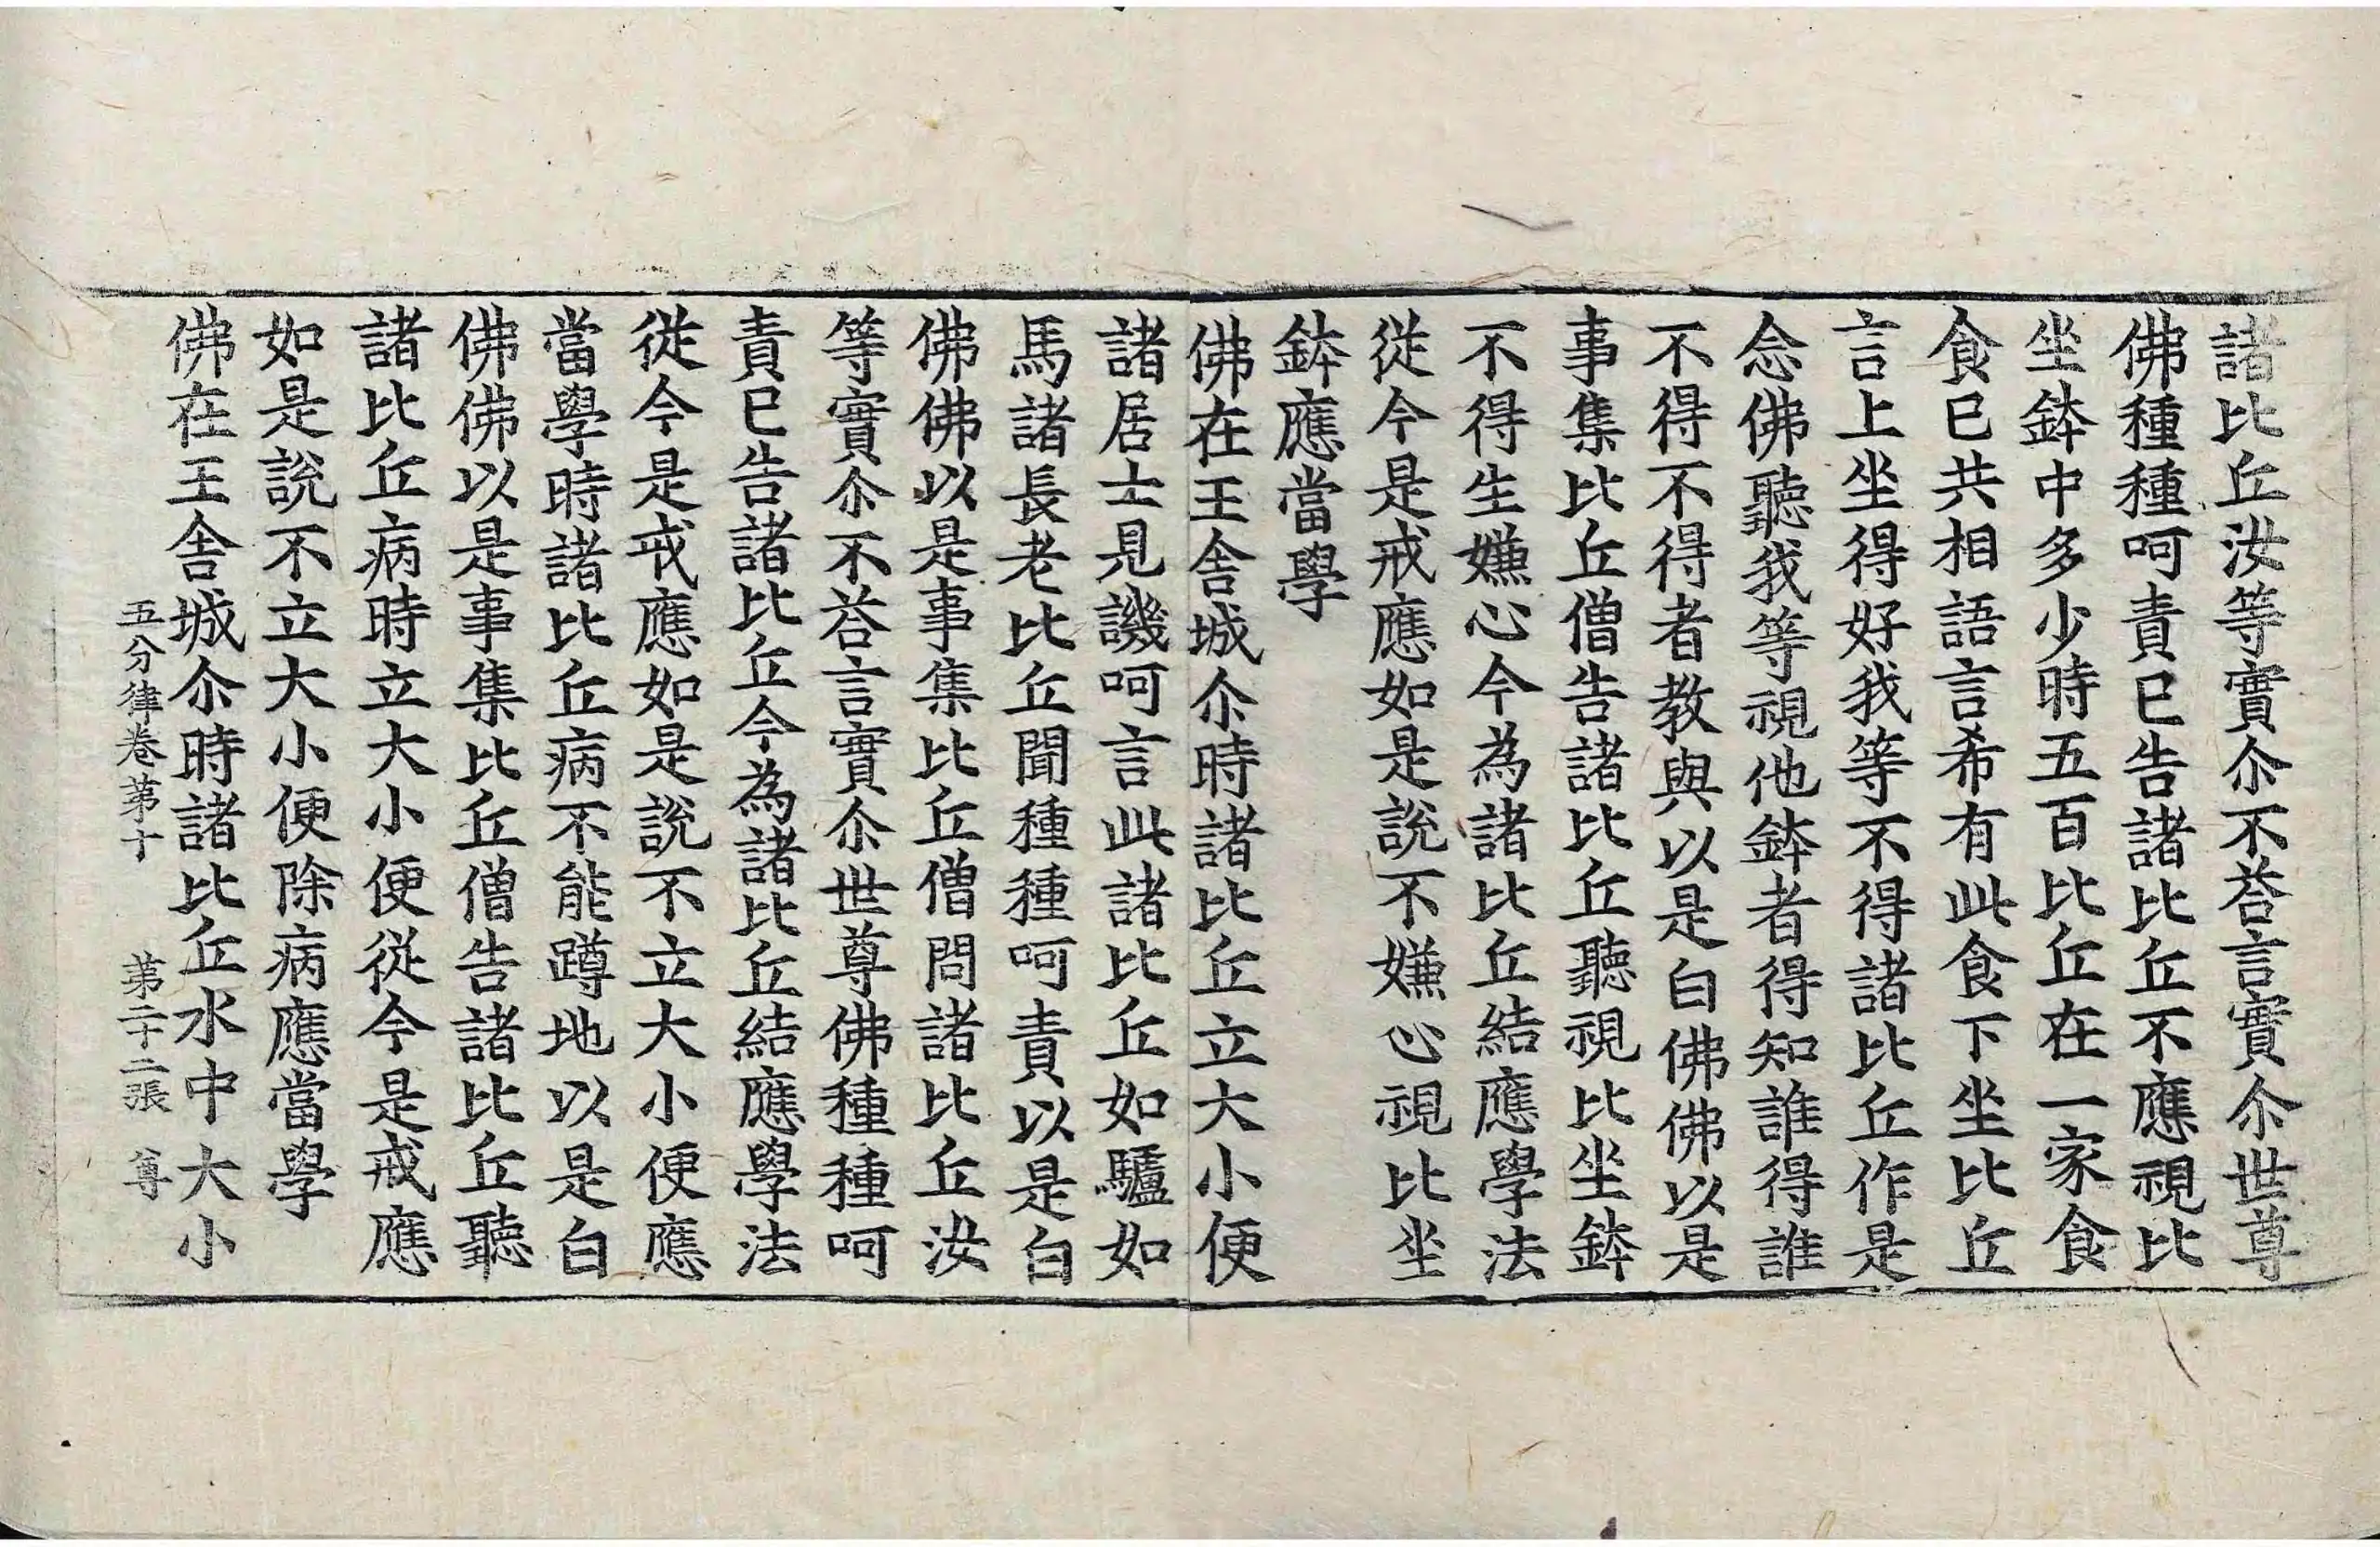 諸比丘汝等實尒不荅言實尒世尊
佛種種呵責已告諸比丘不應視比
坐鉢中多少時五百比丘在一家食
食已共相語言希有此食下坐比丘
言上坐得好我等不得諸比丘作是
念佛聽我等視他鉢者得知誰得誰
不得不得者教與以是白佛佛以是
事集比丘僧告諸比丘聽視比坐鉢
不得生嫌心今為諸比丘結應學法
從今是戒應如是說不嫌心視比坐
鉢應當學
佛在王舍城尒時諸比丘立大小便
諸居士見譏呵言此諸比丘如驢如
馬諸長老比丘聞種種呵責以是白
佛佛以是事集比丘僧問諸比丘汝
等實尒不荅言實尒世尊佛種種呵
責已告諸比丘今為諸比丘結應學法
從今是戒應如是說不立大小便應
當學時諸比丘病不能蹲地以是白
佛佛以是事集比丘僧告諸比丘聽
諸比丘病時立大小便從今是戒應
如是說不立大小便除病應當學
佛在王舍城尒時諸比丘水中大小
五分律卷苐十 苐二十二張 尊